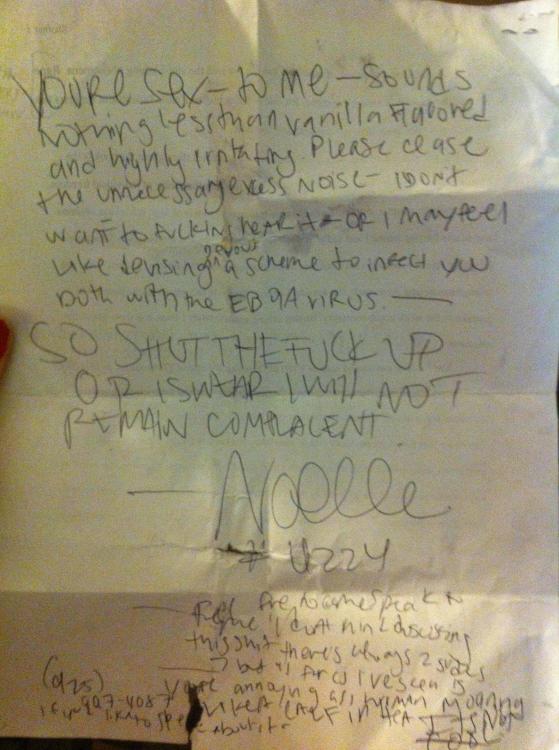 YOURE SEX - to ME - SOUNDS
NOTHING LESS than vanilla flavored
and highly irritating. Please cease
the unnecessary excess NOISE - I DON't
want to fucking hear it - OR I may feel
like devising a scheme to infect you
both with the EB9A VIRUS. —
SO SHUT THE FUCK UP
OR I SWEAR I WILL NOT
REMAIN COMPLACENT.
— Noelle
# U224
feel free to come speak to
me I don't mind discussing
this shit there's always 2 sides
— but all I've seen is
you're annoying
(925)
497-4087
if you'd like to speak about it